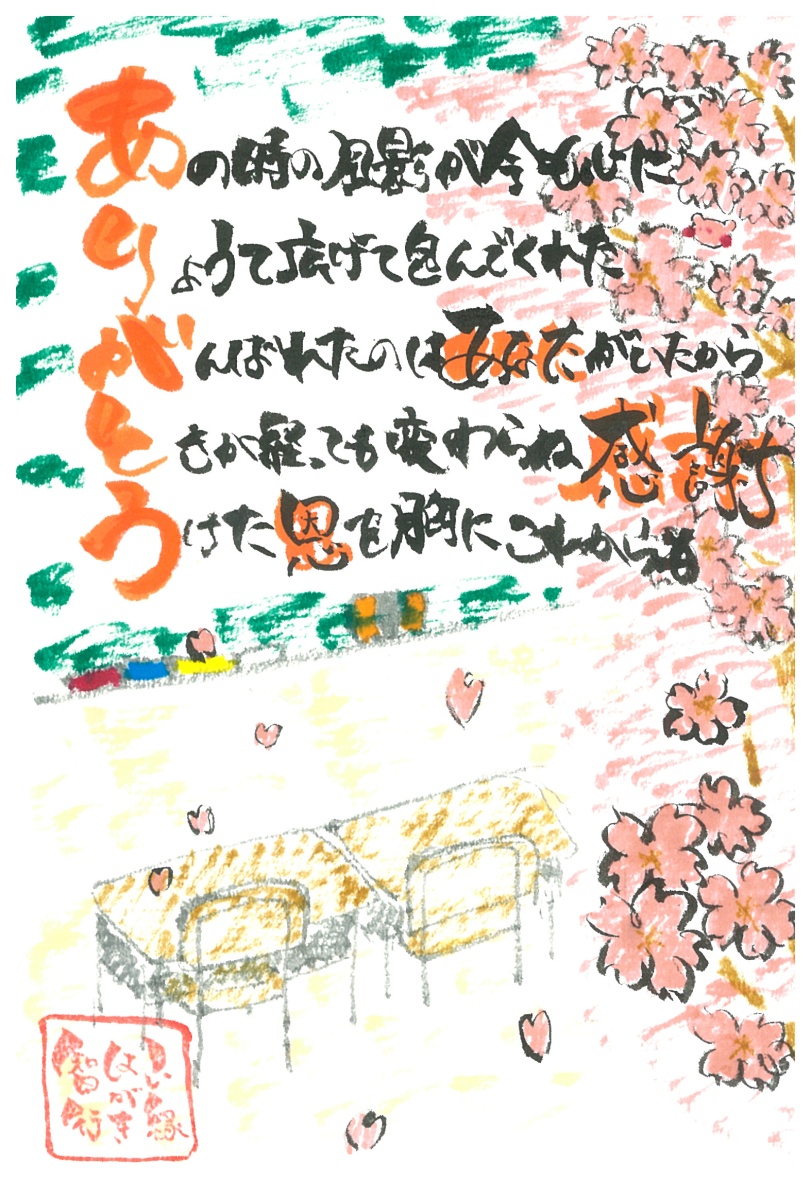 あの時の風景が今も心に
りょうて広げて包んでくれた
がんばれたのはあなたがいたから
ときが経っても変わらぬ感謝
うけた恩を胸にこれからも
はがき
智行